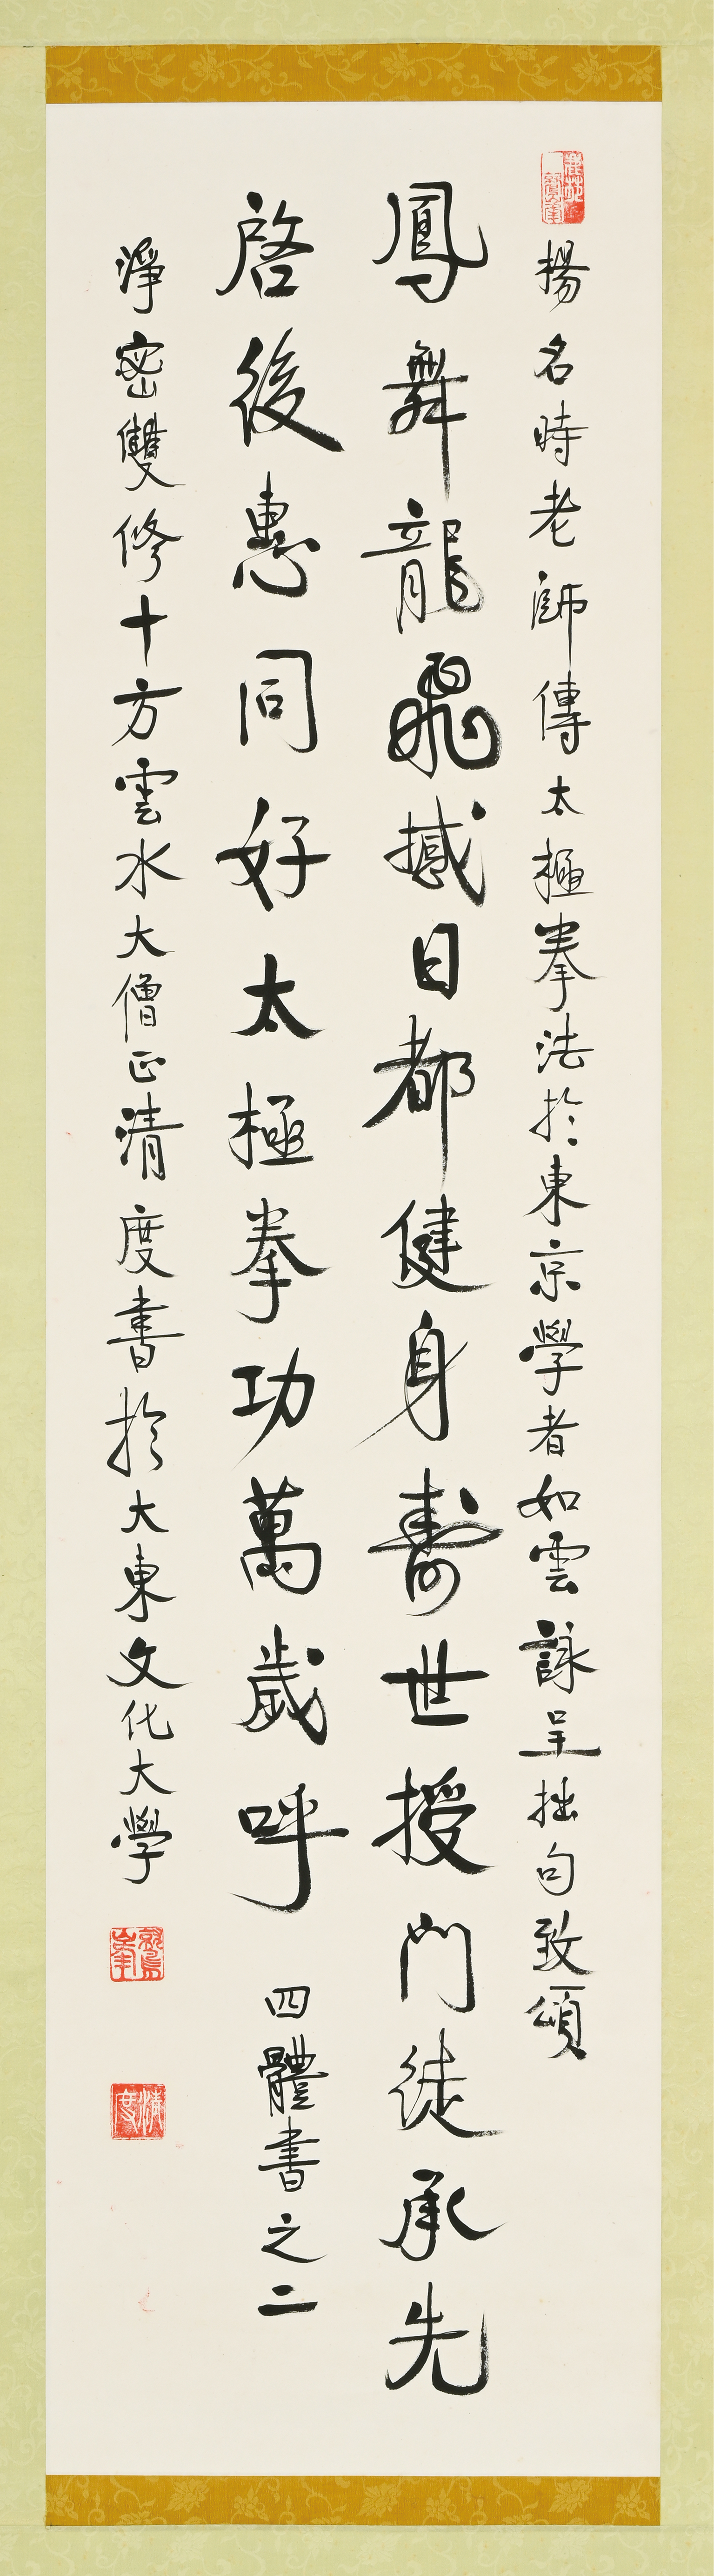 揚名時老師傳太極拳法於東京學者如雲詠呈拙句致頌
鳳舞龍飛撼日都健身壽世授門徒承先
啓後惠同好太極拳功萬歲呼 四體書之二
淨密雙修十方雲水大僧正清度書於大東文化大學
鷲峯
清度